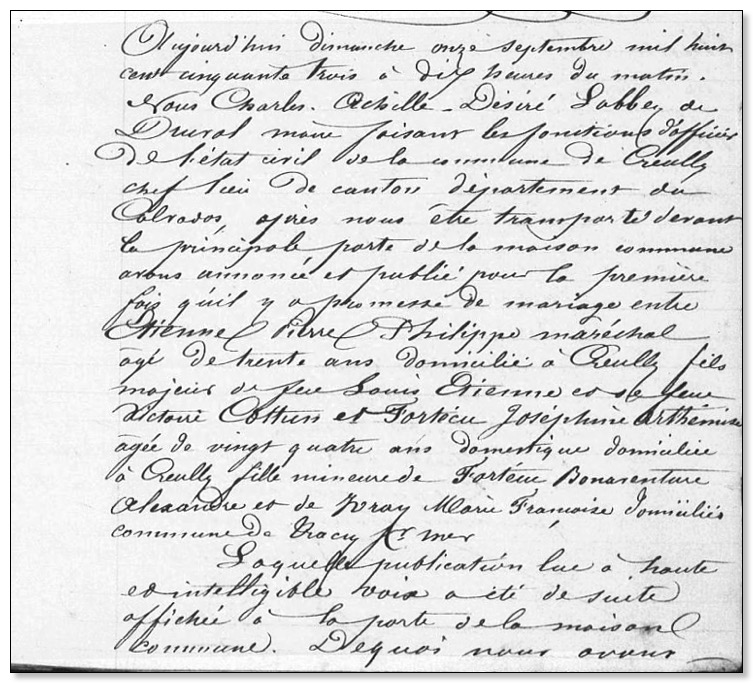 Aujourd'hui dimanche onze septembre mil huit
cent cinquante trois à dix heures du matin.
Nous Charles. Achille - Désiré Labbey de
Druval maire faisant les fonctions d'officier
de l'état civil de la commune de Creully
chef lieu de canton département du
Calvados, après nous être transporté devant
la principale porte de la maison commune
avons annoncé et publié pour la première
fois qu'il y a promesse de mariage entre
Etienne Pierre Philippe maréchal
agé de trente ans domicilié à Creully fils
majeur de feu Louis Etienne et de feue
Victoire Cottun et Fortécu Joséphine Arthémise
agée de vingt quatre ans domestique domiciliée
à Creully fille mineure de Fortécu Bonaventure
Alexandre et de Vray Marie Françoise domiciliés
commune de Tracy Sr mer
Laquelle publication lue à haute
et intelligible voix a été de suite
affichée à la porte de la maison
commune. De quoi nous avons